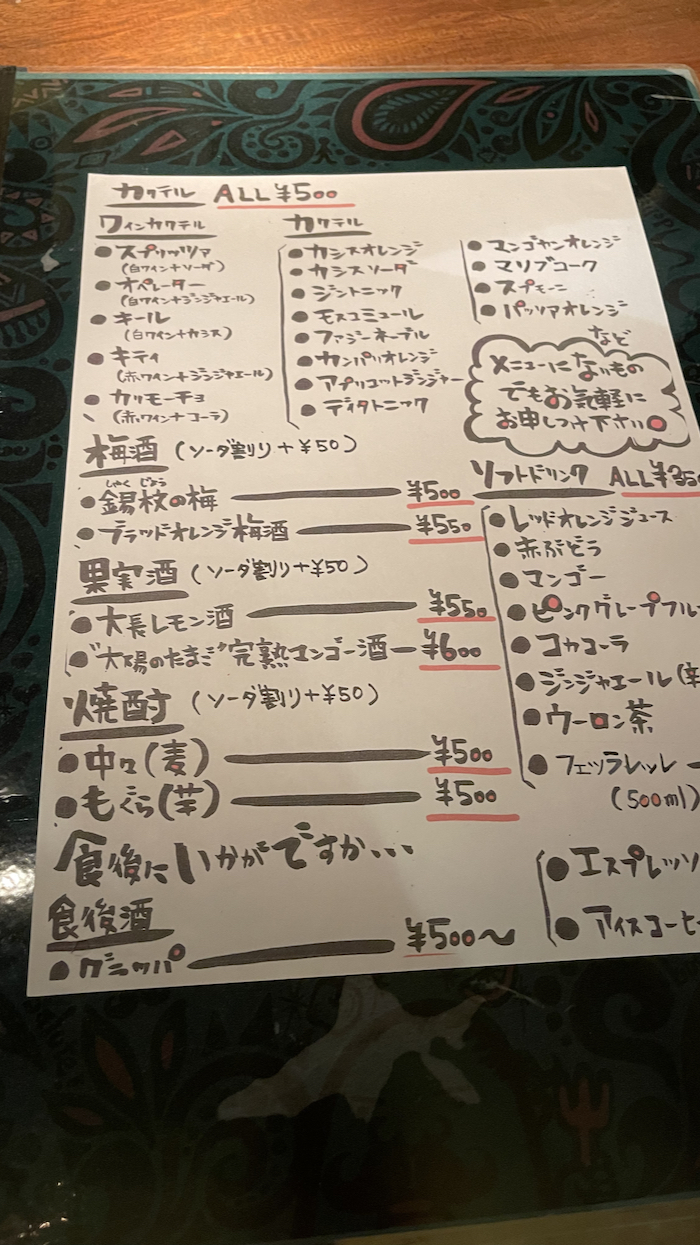 カクテル ALL ¥500
ワインカクテル
● スプリッツァ
(白ワイン+ソーダ)
● オペレーター
(白ワイン+ジンジャエール)
● キール
(白ワイン+カシス)
● キティ
(赤ワイン+ジンジャエール)
● カリモーチョ
(赤ワイン+コーラ)
カクテル
● カシスオレンジ
● カシスソーダ
● ジントニック
● モスコミュール
● ファジーネーブル
● カンパリオレンジ
● アプリコットジンジャー
● ディタトニック
● マンゴヤンオレンジ
● マリブコーク
● スプモーニ
● パッソアオレンジ
など
メニューにないもの
でもお気軽に
お申しつけ下さい
梅酒 (ソーダ割り+¥50)
しゃく じょう
● 錫杖の梅 ¥500
● ブラッドオレンジ梅酒 ¥550
果実酒 (ソーダ割り+¥50)
● 大長レモン酒 ¥550
● "太陽のたまご"完熟マンゴー酒 ¥600
焼酎 (ソーダ割り+¥50)
● 中々(麦) ¥500
● もぐら(芋) ¥500
ソフトドリンク ALL ¥350
● レッドオレンジジュース
● 赤ぶどう
● マンゴー
● ピンクグレープフル
● コカコーラ
● ジンジャエール(辛
● ウーロン茶
● フェッラレッレ
(500ml)
食後にいかがですか...
食後酒
● グラッパ ¥500〜
● エスプレッソ
● アイスコーヒー